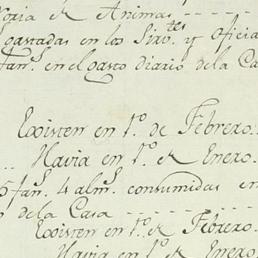 oria de Animas
gastadas en los Sirv.tes y Oficia
fan.s en el gasto diario de la Ca
Existen en 1.o de Febrero.
Havia en 1.o de Enero.
5 fan.s 4 alm.s consumidas en
de la Casa
Existen en 1.o de Febrero.
Havia en 1.o de Enero